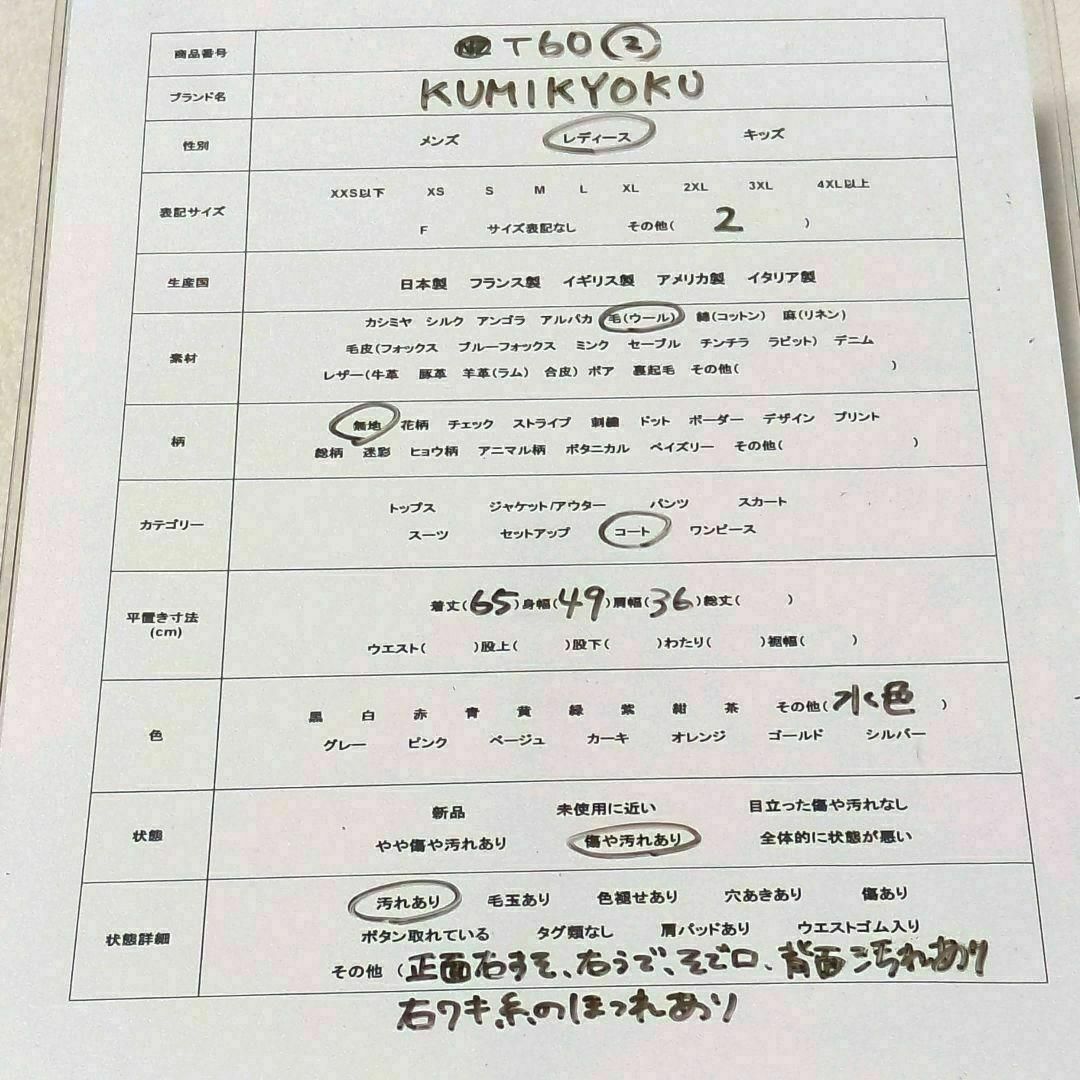 商品番号 T60②
ブランド名 KUMIKYOKU
性別 メンズ レディース キッズ
表記サイズ XXS以下 XS S M L XL 2XL 3XL 4XL以上
F サイズ表記なし その他( 2 )
生産国 日本製 フランス製 イギリス製 アメリカ製 イタリア製
素材 カシミヤ シルク アンゴラ アルパカ 毛(ウール) 綿(コットン) 麻(リネン)
毛皮(フォックス ブルーフォックス ミンク セーブル チンチラ ラビット) デニム
レザー(牛革 豚革 羊革(ラム) 合皮) ボア 裏起毛 その他( )
柄 無地 花柄 チェック ストライプ 刺繍 ドット ボーダー デザイン プリント
総柄 迷彩 ヒョウ柄 アニマル柄 ボタニカル ペイズリー その他( )
カテゴリー トップス ジャケット/アウター パンツ スカート
スーツ セットアップ コート ワンピース
平置き寸法 着丈(65)身幅(49)肩幅(36)総丈( )
(cm) ウエスト( )股上( )股下( )わたり( )裾幅( )
色 黒 白 赤 青 黄 緑 紫 紺 茶 その他(水色 )
グレー ピンク ベージュ カーキ オレンジ ゴールド シルバー
状態 新品 未使用に近い 目立った傷や汚れなし
やや傷や汚れあり 傷や汚れあり 全体的に状態が悪い
状態詳細 汚れあり 毛玉あり 色褪せあり 穴あきあり 傷あり
ボタン取れている タグ類なし 肩パッドあり ウエストゴム入り
その他 (正面右すそ、右うで、そで口、背面汚れあり
右ワキ糸のほつれあり